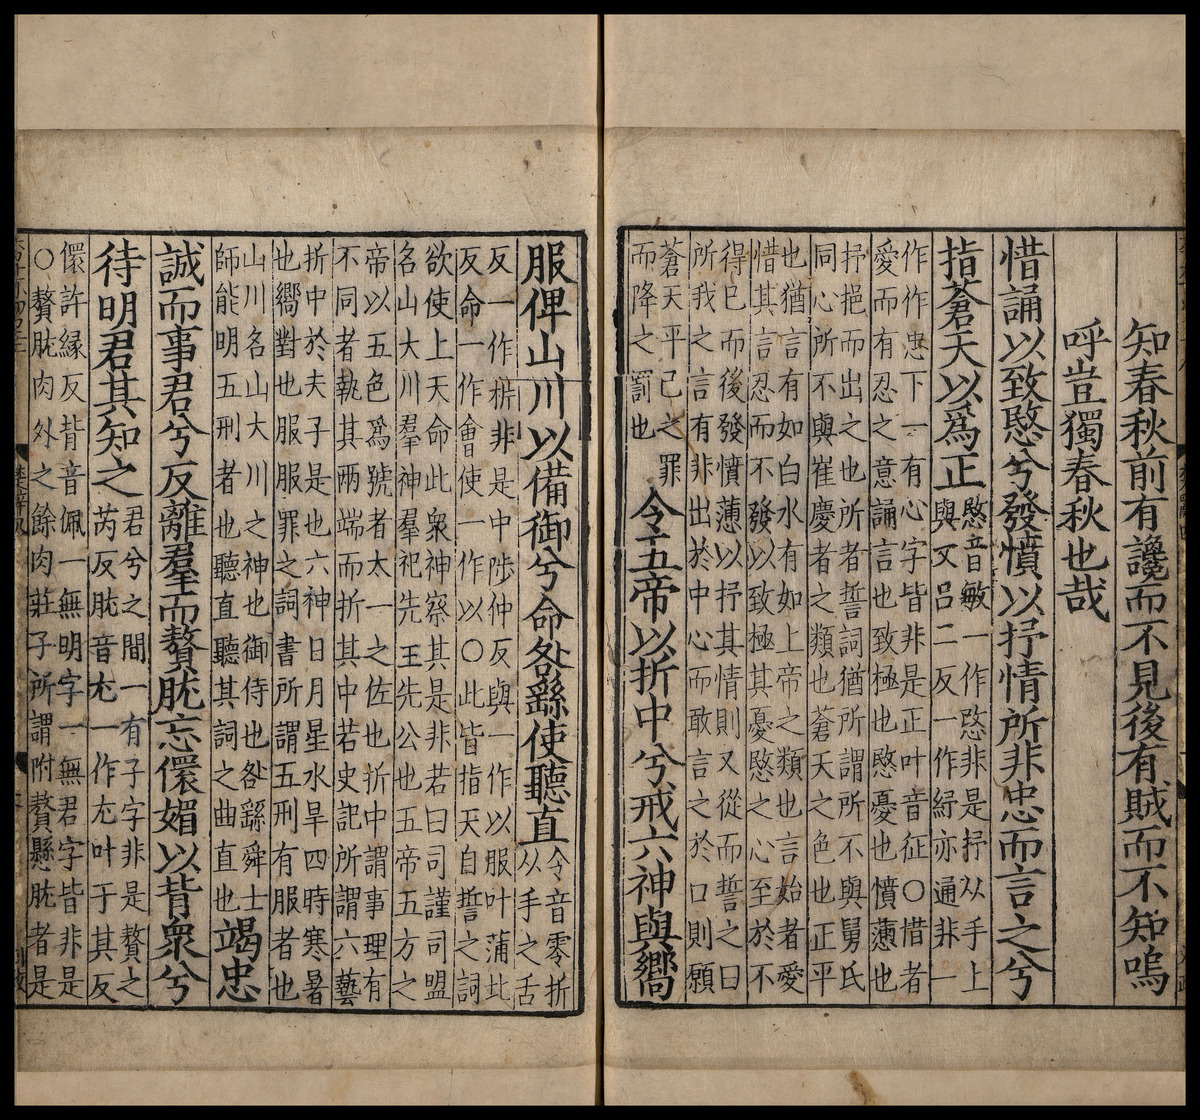 知春秋前有讒而不見後有賊而不知嗚
呼豈獨春秋也哉
惜誦以致愍兮發憤以抒情所非忠而言之兮
指蒼天以爲正
愍音敏一作非是抒从手上
與又呂二反一作紓亦通非一
作作忠下一有心字皆非是正叶音征○惜者
愛而有忍之意誦言也致極也愍憂也憤懣也
抒挹而出之也所者誓詞猶所謂所不與舅氏
同心所不與崔慶者之類也蒼天之色也正平
也猶言有如白水有如上帝之類也言始者愛
惜其言忍而不發以致極其憂愍之心至於不
得已而後發憤懣以抒其情則又從而誓之曰
所我之言有非出於中心而敢言之於口則願
蒼天平己之罪
而降之罰也
令五帝以折中兮戒六神與嚮
服俾山川以備御兮命咎繇使聽直
令音零折
从手之舌
反一作㭊非是中陟仲反與一作以服叶蒲北
反命一作會使一作以○此皆指天自誓之詞
欲使上天命此衆神察其是非若曰司謹司盟
名山大川羣神羣祀先王先公也五帝五方之
帝以五色爲號者太一之佐也折中謂事理有
不同者執其兩端而折其中若史記所謂六藝
折中於夫子是也六神日月星水旱四時寒暑
也嚮對也服服罪之詞書所謂五刑有服者也
山川名山大川之神也御侍也咎繇舜士
師能明五刑者也聽直聽其詞之曲直也
竭忠
誠而事君兮反離羣而贅肬忘儇媚以背衆兮
待明君其知之
君兮之間一有子字非是贅之
芮反肬音尤一作尢叶于其反
儇許緣反背音佩一無明字一無君字皆非是
○贅肬肉外之餘肉莊子所謂附贅懸肬者是